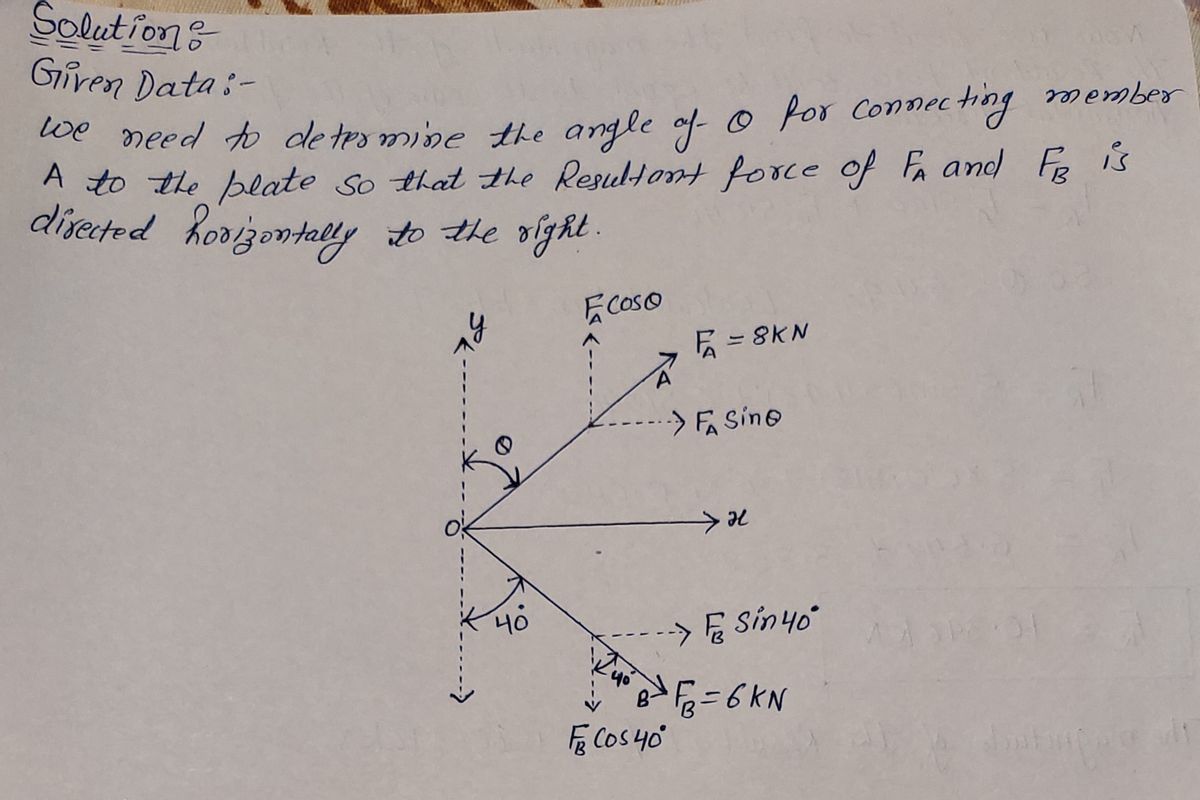 Solution:-
Given Data:-
We need to determine the angle of θ for connecting member
A to the plate so that the Resultant force of F_A and F_B is
directed horizontally to the right.
F_A cosθ
y
F_A = 8KN
A
F_A Sinθ
θ
O
x
40°
F_B Sin40°
40°
B
F_B = 6KN
F_B Cos40°